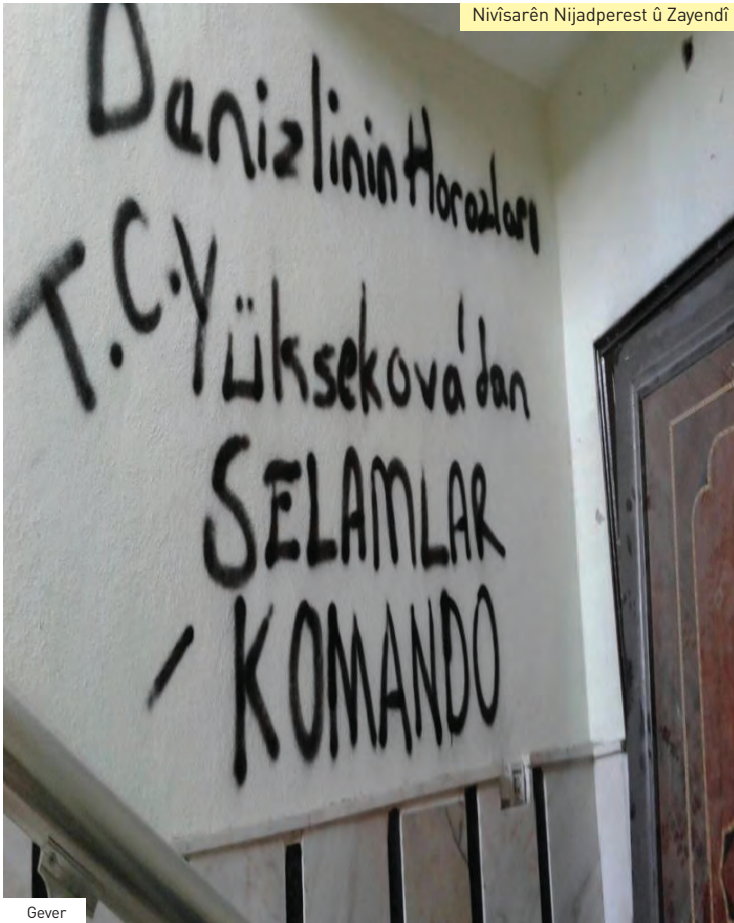 Nivîsarên Nijadperest û Zayendî
Denizlinin Horozları
T.C. Yüksekova'dan
SELAMLAR
KOMANDO
Gever